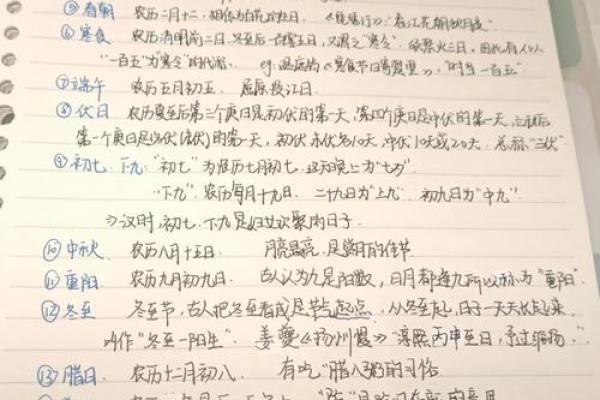 ⑤春朝 农历二月十二，相传为百花的生日。《琵琶行》：春江花朝秋月夜
⑥寒食 农历清明前二日，冬至后一百零五日，又谓之"寒令"。禁火三日，因此有人以
"一百五"为"寒令"的代称。 eg：温庭筠《寒食节日寄楚望》，"时当一百五"
⑦端午 农历五月初五。 屈原投江日
⑧伏日 农历夏至后第三个庚日是初伏的第一天，第四个庚日是中伏的第一天，立秋后
第一个庚日是终伏(末伏)的第一天，初伏末伏各10天，中伏10天或20天。总称"三伏"
⑨初七、下九："初七"为农历七月初七。这天晚上为"七夕"
"下九"：农历每月十九日。 二十九日为"上九" 初九日为"中九"
⇒汉时，初七、下九是妇女欢聚的日子
⑩中秋 农历八月十五日。 月亮最亮，是赏月的佳节
⑪重阳 农历九月初九日。 古人认为九是阳数，日月都逢九所以称为"重阳"
⑫冬至 冬至节，古人把冬至看成是节气起点，从冬至起，日子一天天长起来，
叫作"冬至一阳生"。 姜夔《扬州慢》"淳熙丙申至日，予过维扬。"
⑬腊日 农历十二月初八。 有吃"腊八粥"的习俗